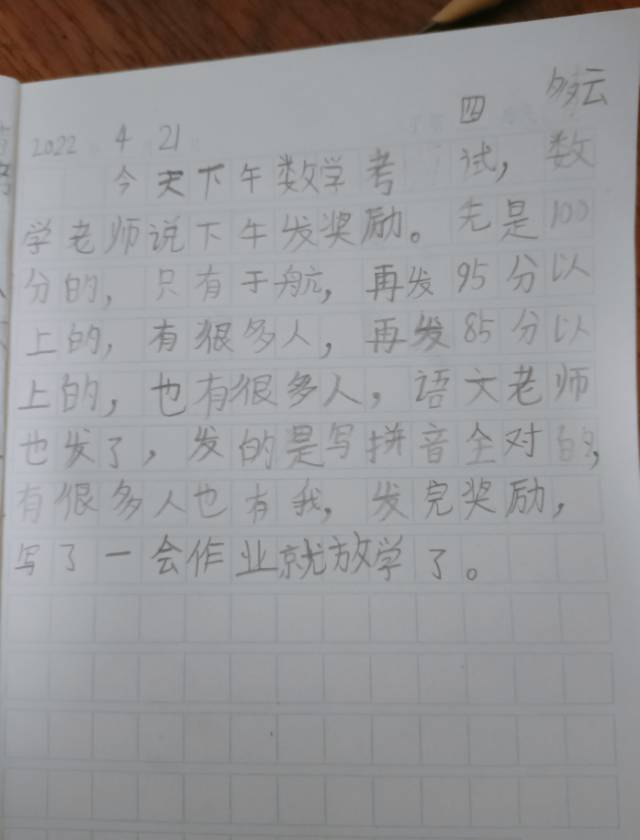 2022 4 21 四 多云
今天下午数学考试，数
学老师说下午发奖励。先是100
分的，只有于航，再发95分以
上的，有很多人，再发85分以
上的，也有很多人，语文老师
也发了，发的是写拼音全对的，
有很多人也有我，发完奖励，
写了一会作业就放学了。